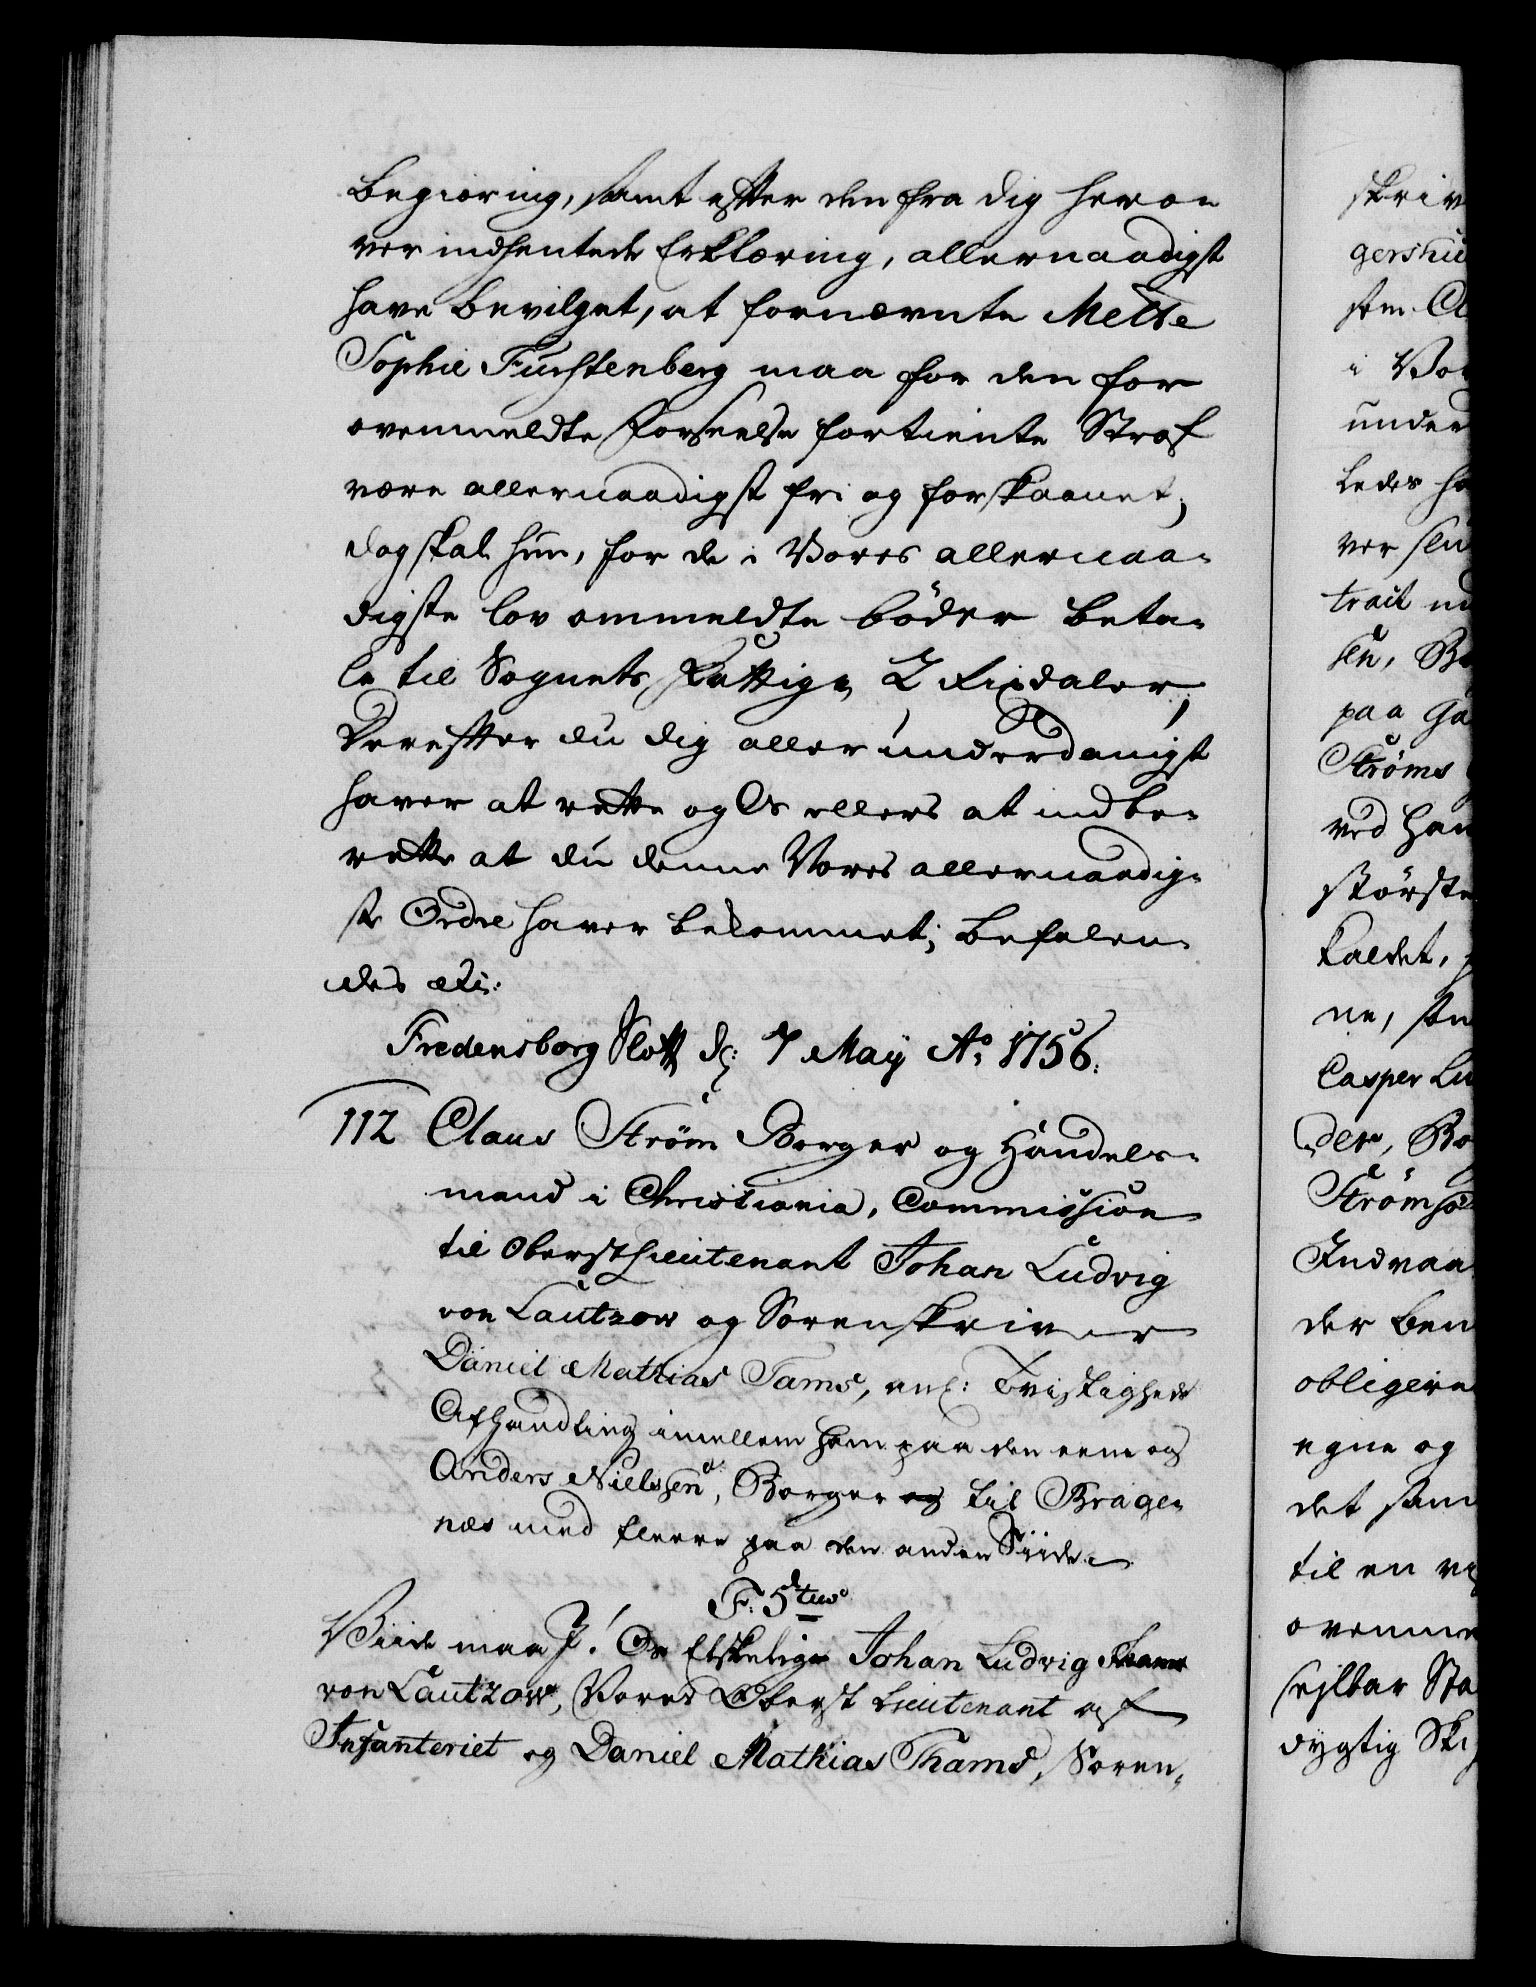 begiæring, samt efter den fra dig hero-
ver indhentede Erklæring, allernaadigst
have bevilget, at fornevnte Mette
Sophie Furstenberg maa for den for
ovenmeldte Forseelse fortiente Straf
være allernaadigst fri og forskaanet;
dog skal hun, for de i Vores allernaa-
digste lov ommeldte bøder beta-
le til Sognets Fattige 2 Rixdaler;
Derefter du dig allerunderdanigst
haver at rette og Os ellers at indbe-
rette at du denne Vores allernaadig-
ste Ordre haver bekommet; Befalen-
des etc:
Fredensborg Slott d: 7 Maÿ Ao 1756.
112 Claus Strøm Borger og Handels-
mand i Christiania, Commission
til Oberstlieutenant Johan Ludvig
von Lautzow og Sorenskriver
Daniel Mathias Tams, anl: Tvistigheds
Afhandling imellem ham paa den eene og
Anders Nielssen, Borger og til Brage-
næs med fleere paa den anden Siide.
F: 5tus
Viide maa I! Os Elskelige Johan Ludvig
von Lautzow, Vores Oberst Lieutenant af
Infanteriet og Daniel Mathias Thams, Soren-
skriv
gershu
sten Cl
i Vor
under
ledes ha
ver slu
tract
sen, Bo
paa Ga
Strøms
ved Han
største
kaldet,
ne,
Casper Lu
der, Bo
Strømsø
Indvaa
der ben
obligere
egne og
det sam
til en
ovenme
sejlbar Sta
dygtig Ski